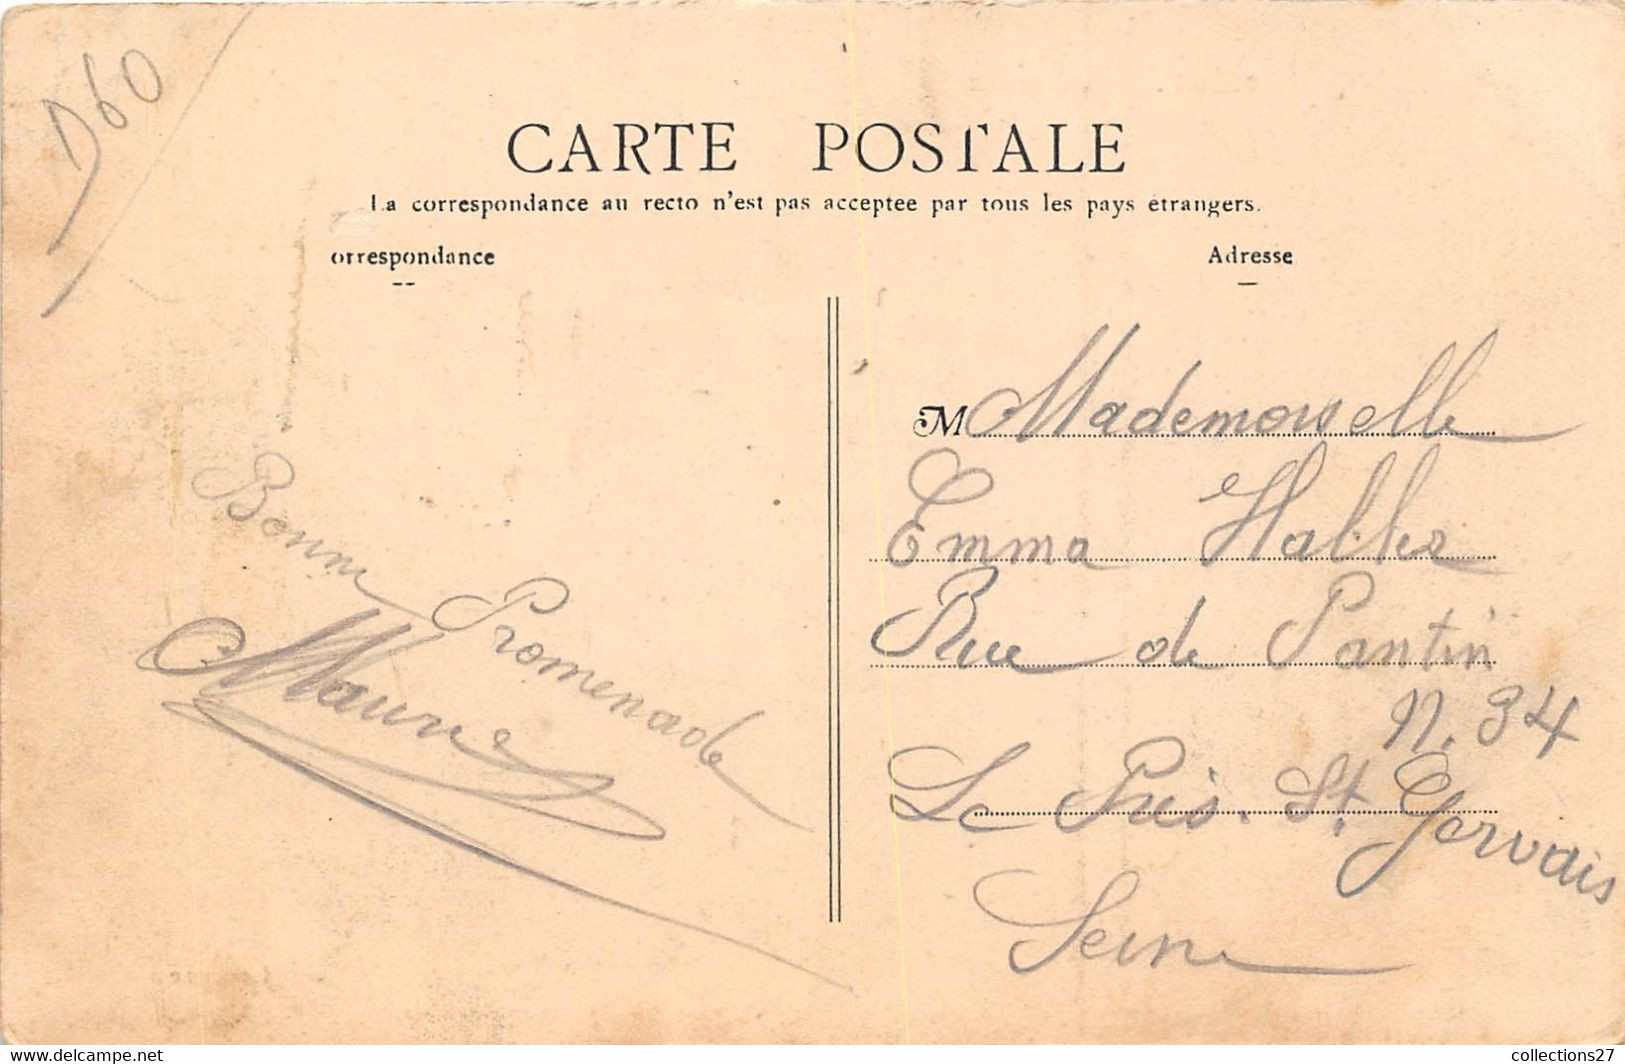 D60
CARTE POSTALE
La correspondance au recto n'est pas acceptee par tous les pays étrangers.
orrespondance
Adresse
M Mademoiselle
Emma
Rue de Pantin
N. 34
Le Prés. St. Gervais
Seine
Bonne Promenade
www.delcampe.net
collections27